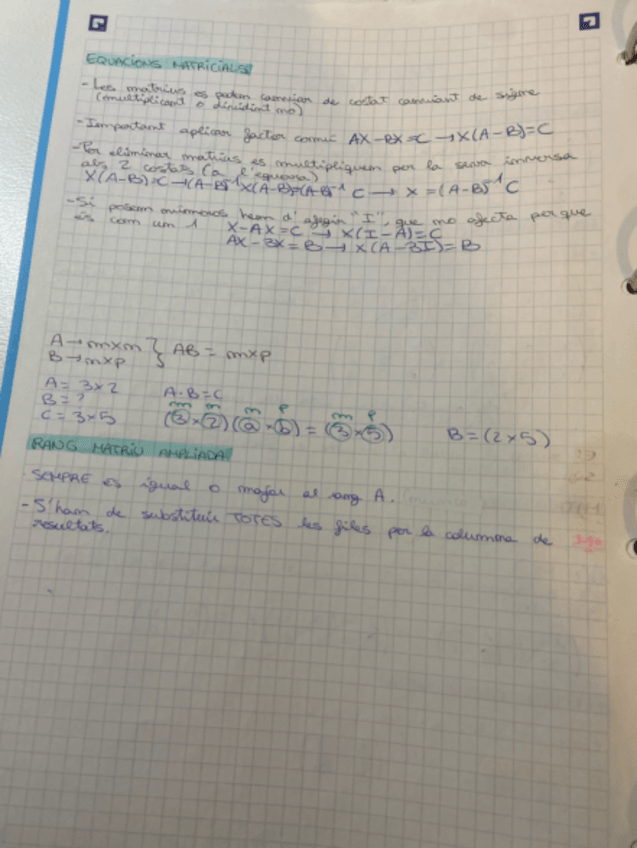 EQUACIONS MATRICIALS
- Les matrius es poden canviar de costat canviant de signe
(multiplicant o dividint no)
- Important aplicar factor comú: AX - BX = C → X(A-B) = C
- Per eliminar matrius es multipliquen per la seva inversa
als 2 costats (a l'esquerra)
X(A-B) = C → (A-B)⁻¹X(A-B) = (A-B)⁻¹ C → X = (A-B)⁻¹ C
- Si posem números hem d'afegir "I", que no afecta perquè
és com un 1 X - AX = C → X(I-A) = C
AX - 3X = B → X(A-3I) = B
A → m×n } AB = m×p
B → n×p
A = 3×2 A·B = C
B = ? m n n p m p
C = 3×5 (3×2)(a×b) = (3×5) B = (2×5)
RANG MATRIU AMPLIADA
SEMPRE és igual o major al rang A.
- S'han de substituir TOTES les files per la columna de
resultats.